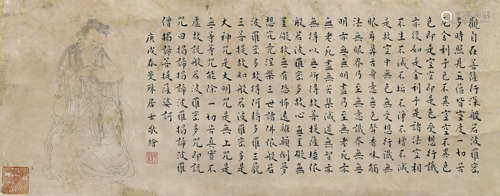 觀自在菩薩行深般若波羅蜜
多時照見五蘊皆空度一切苦
厄舍利子色不異空空不異色
色即是空空即是色受想行識
亦復如是舍利子是諸法空相
不生不滅不垢不淨不增不減
是故空中無色無受想行識無
眼耳鼻舌身意無色聲香味觸
法無眼界乃至無意識界無無
明亦無無明盡乃至無老死亦
無老死盡無苦集滅道無智亦
無得以無所得故菩提薩埵依
般若波羅蜜多故心無罣礙無
罣礙故無有恐怖遠離顛倒夢
想究竟涅槃三世諸佛依般若
波羅蜜多故得阿耨多羅三藐
三菩提故知般若波羅蜜多是
大神咒是大明咒是無上咒是
無等等咒能除一切苦真實不
虛故說般若波羅蜜多咒即說
咒曰揭諦揭諦波羅揭諦波羅
僧揭諦菩提薩婆訶
庚戌春曼殊居士敬繪